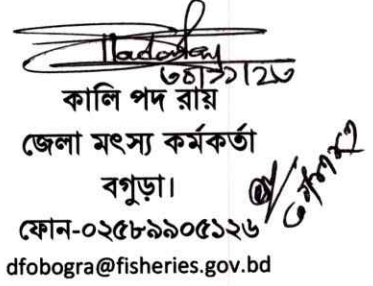 ৩০/১১/২৩
কালি পদ রায়
জেলা মৎস্য কর্মকর্তা
বগুড়া।
ফোন-০২৫৮৯৯০৫১২৬
dfobogra@fisheries.gov.bd